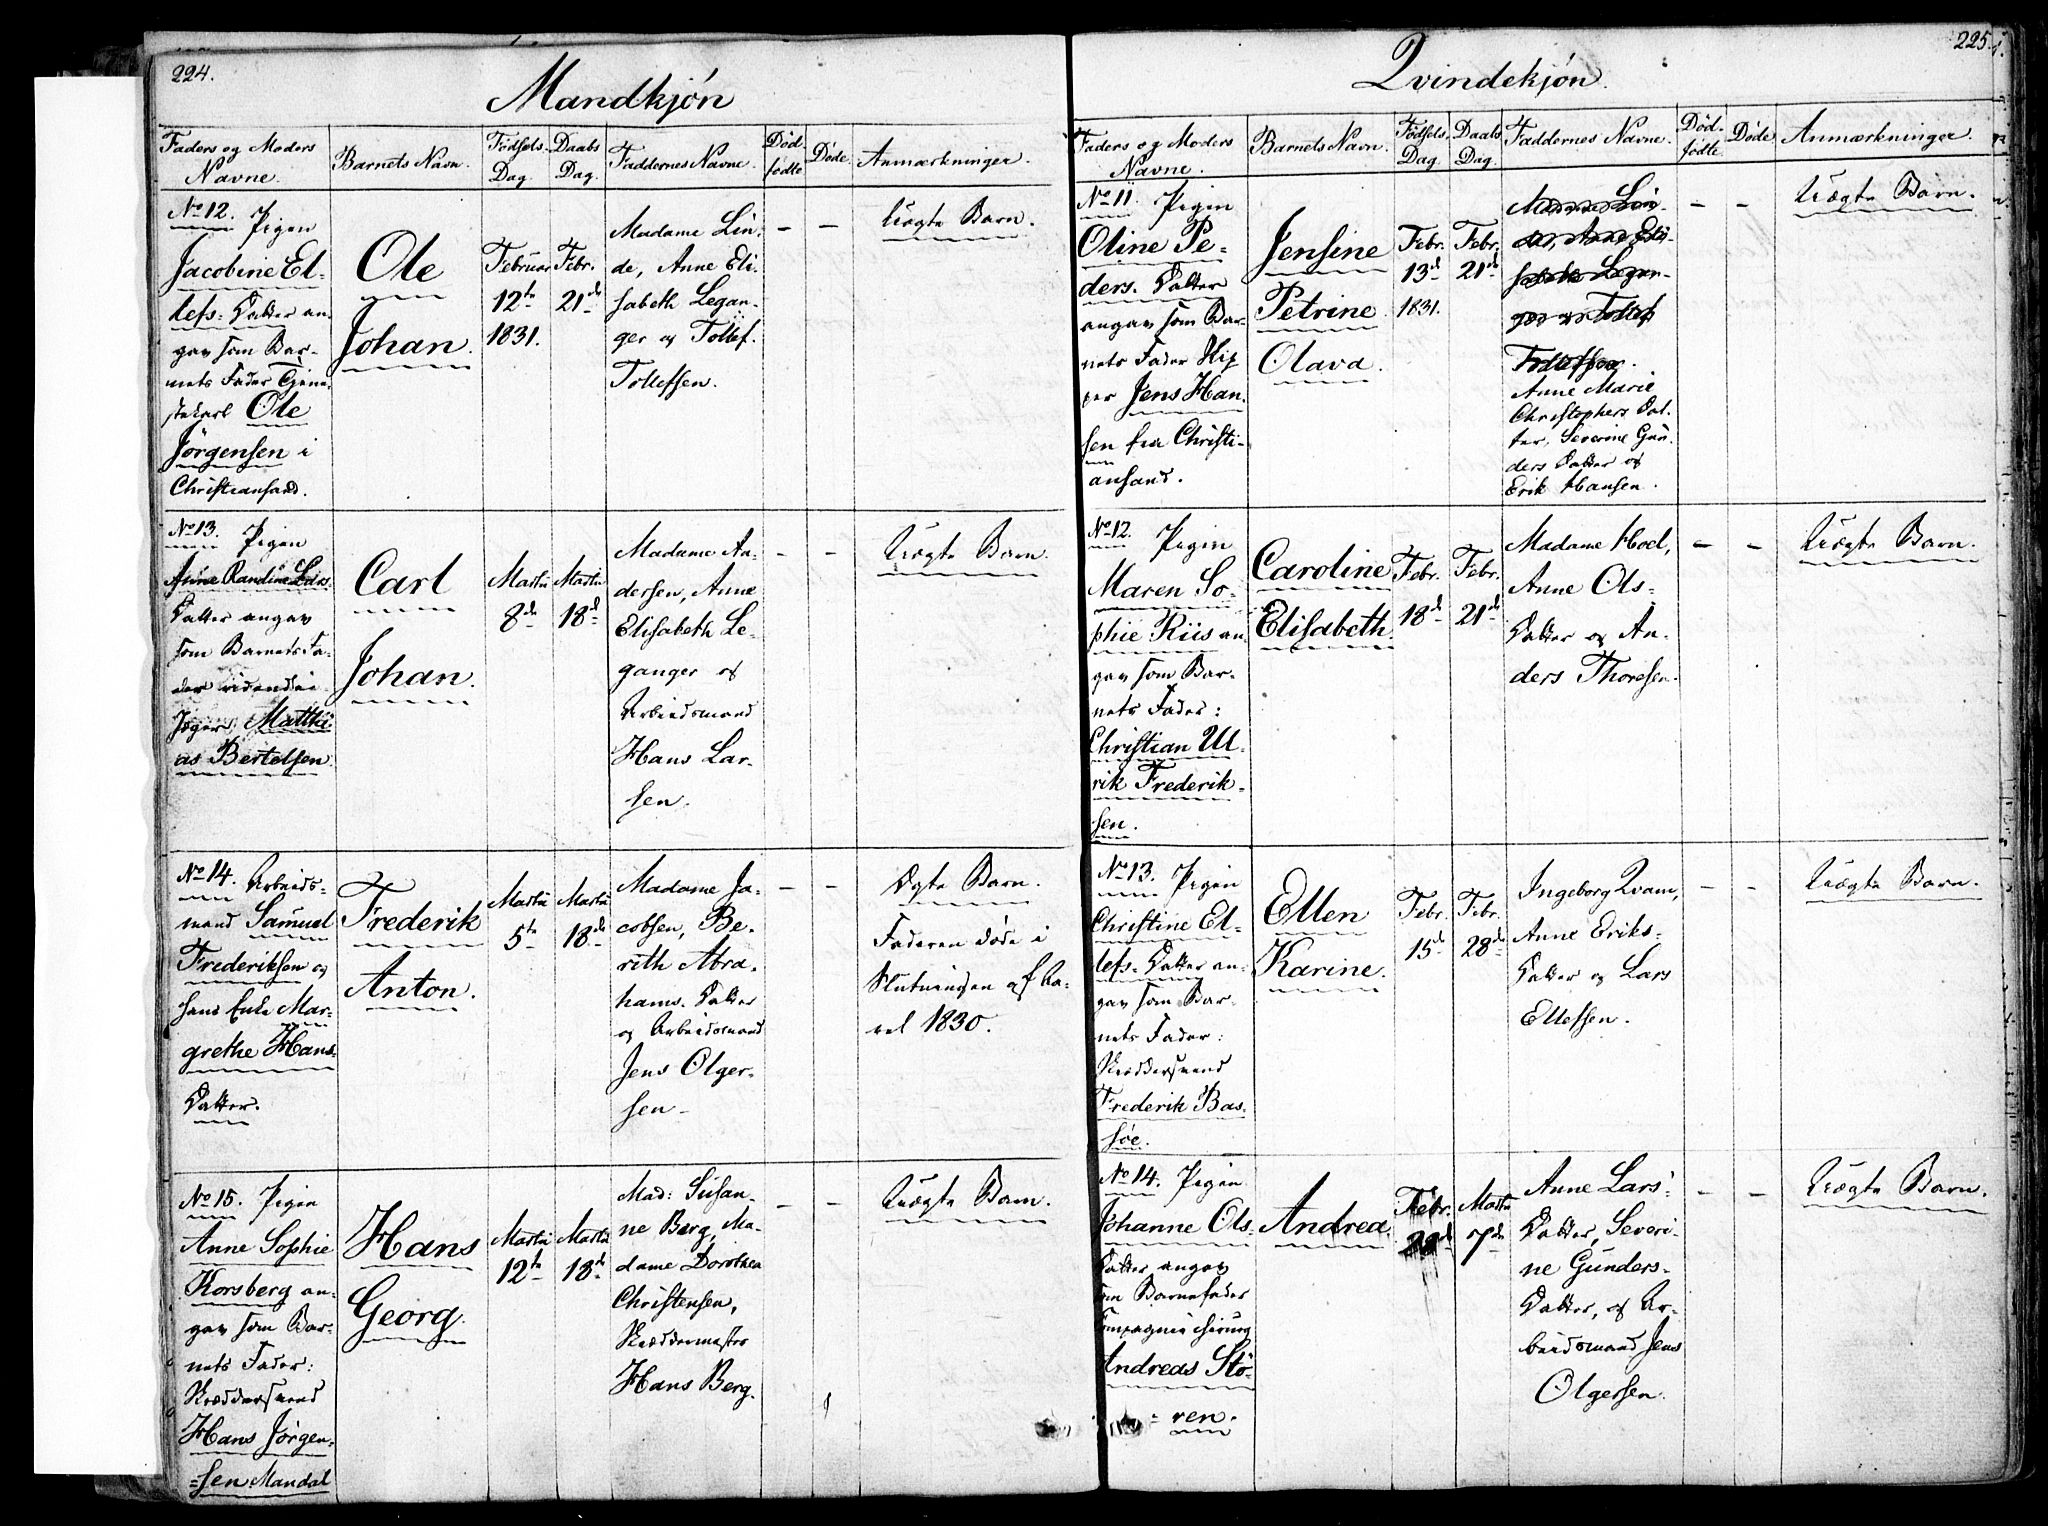 224.
Mandkjön
Faders og Moders
Navne.
Barnets Navn.
Födsels
Dag.
Daabs
Dag.
Faddernes Navne.
Död-
födte
Döde.
Anmærkninger.
No 12. Pigen
Jacobine El-
lefs- Datter an-
gav som Bar-
nets Fader Tjene-
stekarl Ole
Jörgensen i
Christiansand.
Ole
Johan.
Februar
12te
1831.
Febr.
21de
Madame Lin-
de, Anne Eli-
sabeth Legan-
ger og Tollef.
Tollefsen.
—
—
Uægte Barn.
No 13. Pigen
Anne Randine Lars
Datter angav
som Barnets Fa-
der ridende
Jæger Matthi-
as Bertelsen.
Carl
Johan.
Martii
8de
Martii
18de
Madame An-
dersen, Anne
Elisabeth Le-
ganger og
Arbeidsmand
Hans Lar-
sen.
—
—
Uægte Barn.
No 14. Arbeids-
mand Samuel
Frederiksen og
hans Enke Mar-
grethe Hans-
Datter.
Frederik
Anton.
Martii
5te
Martii
18de
Madame Ja-
cobsen, Be-
rith Abra-
hams- Datter
og Arbeidsmand
Jens Olger-
sen -
—
—
Ægte Barn.
Faderen döde i
Slutningen af Aa-
ret 1830.
No 15. Pigen
Anne Sophie
Korsberg an-
gav som Bar-
nets Fader:
Skræddersvend
Hans Jörgen-
=sen Mandal
Hans
Georg.
Martii
12te
Martii
18de
Mad: Susan-
ne Berg, Ma-
dame Dorothea
Christensen,
Skræddermester
Hans Berg.
—
—
Uægte Barn.
225.
Qvindekjön.
Faders og Moders
Navne.
Barnets Navn.
Födsels
Dag.
Daabs
Dag.
Faddernes Navne.
Död-
födte
Döde
Anmærkninger.
No 11. Pigen
Oline Pe-
ders- Datter
angav som Bar-
nets Fader Kip
per Jens Han-
sen fra Christi-
ansand.
Jensine
Petrine
Olava.
Febr.
13de
1831.
Febr.
21de
Madame Lin-
de, Anne Eli-
sabeth Legan-
ger og Tollef
Tollefsen.
Anne Marie
Christophers Dat-
ter, Severine Gun-
ders Datter og
Erik Hansen.
—
—
Uægte Barn.
No 12. Pigen
Maren So-
phie Riis an-
gav som Bar-
nets Fader:
Christian Ul-
rik Frederik-
sen.
Caroline
Elisabeth.
Febr.
18de
Febr.
21de
Madame Hoel,
Anne Ols-
Datter og An-
ders Thoresen.
—
—
Uægte Barn.
No 13. Pigen
Christine El-
lefs- Datter an-
gav som Bar-
nets Fader:
Skræddersvend
Frederik Bas-
söe.
Ellen
Karine.
Febr.
15de
Febr.
28de
Ingeborg Qvam,
Anne Eriks-
Datter og Lars
Ellefsen.
—
—
Uægte Barn.
No 14. Pigen
Johanne Ols-
Datter angav
som Barnefader
Compagnie Chirurg
Andreas Stö-
=ren.
Andrea.
Febr.
Martii
7de
Anne Lars-
Datter, Severi-
ne Gunders-
Datter, og Ar-
beidsmand Jens
Olgersen.
—
—
Uægte Barn.